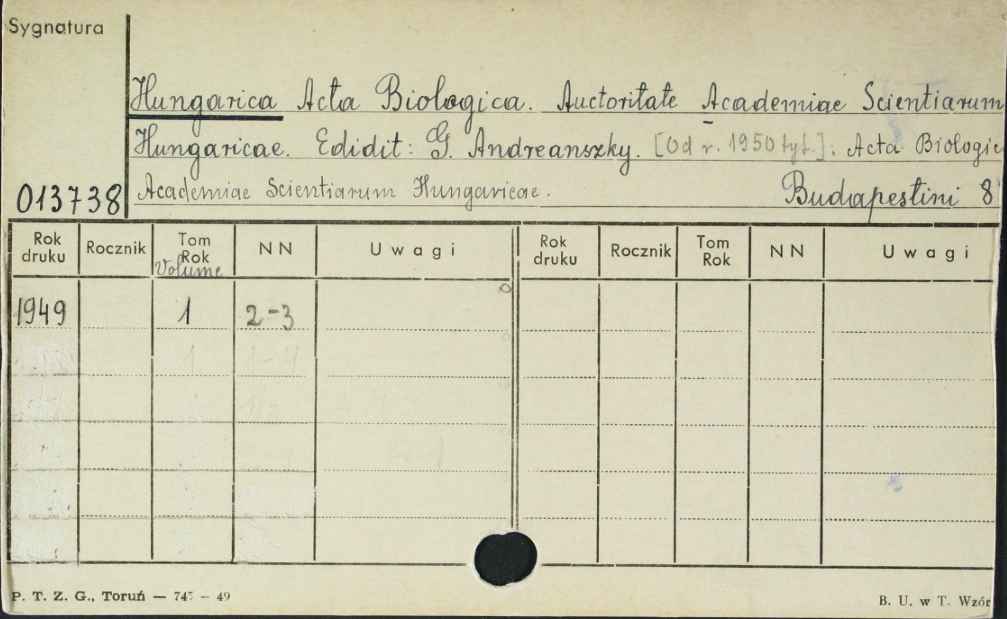 Sygnatura
Hungarica Acta Biologica. Auctoritate Academiae Scientiarum
Hungaricae. Edidit: G. Andreanszky. [Od r. 1950 tyt.]: Acta Biologic
013738 Academiae Scientiarum Hungaricae. Budapestini 8
Rok druku Rocznik Tom Rok Volume NN Uwagi Rok druku Rocznik Tom Rok NN Uwagi
1949 1 2-3
P. T. Z. G., Toruń — 747 — 49 B. U. w T. Wzór